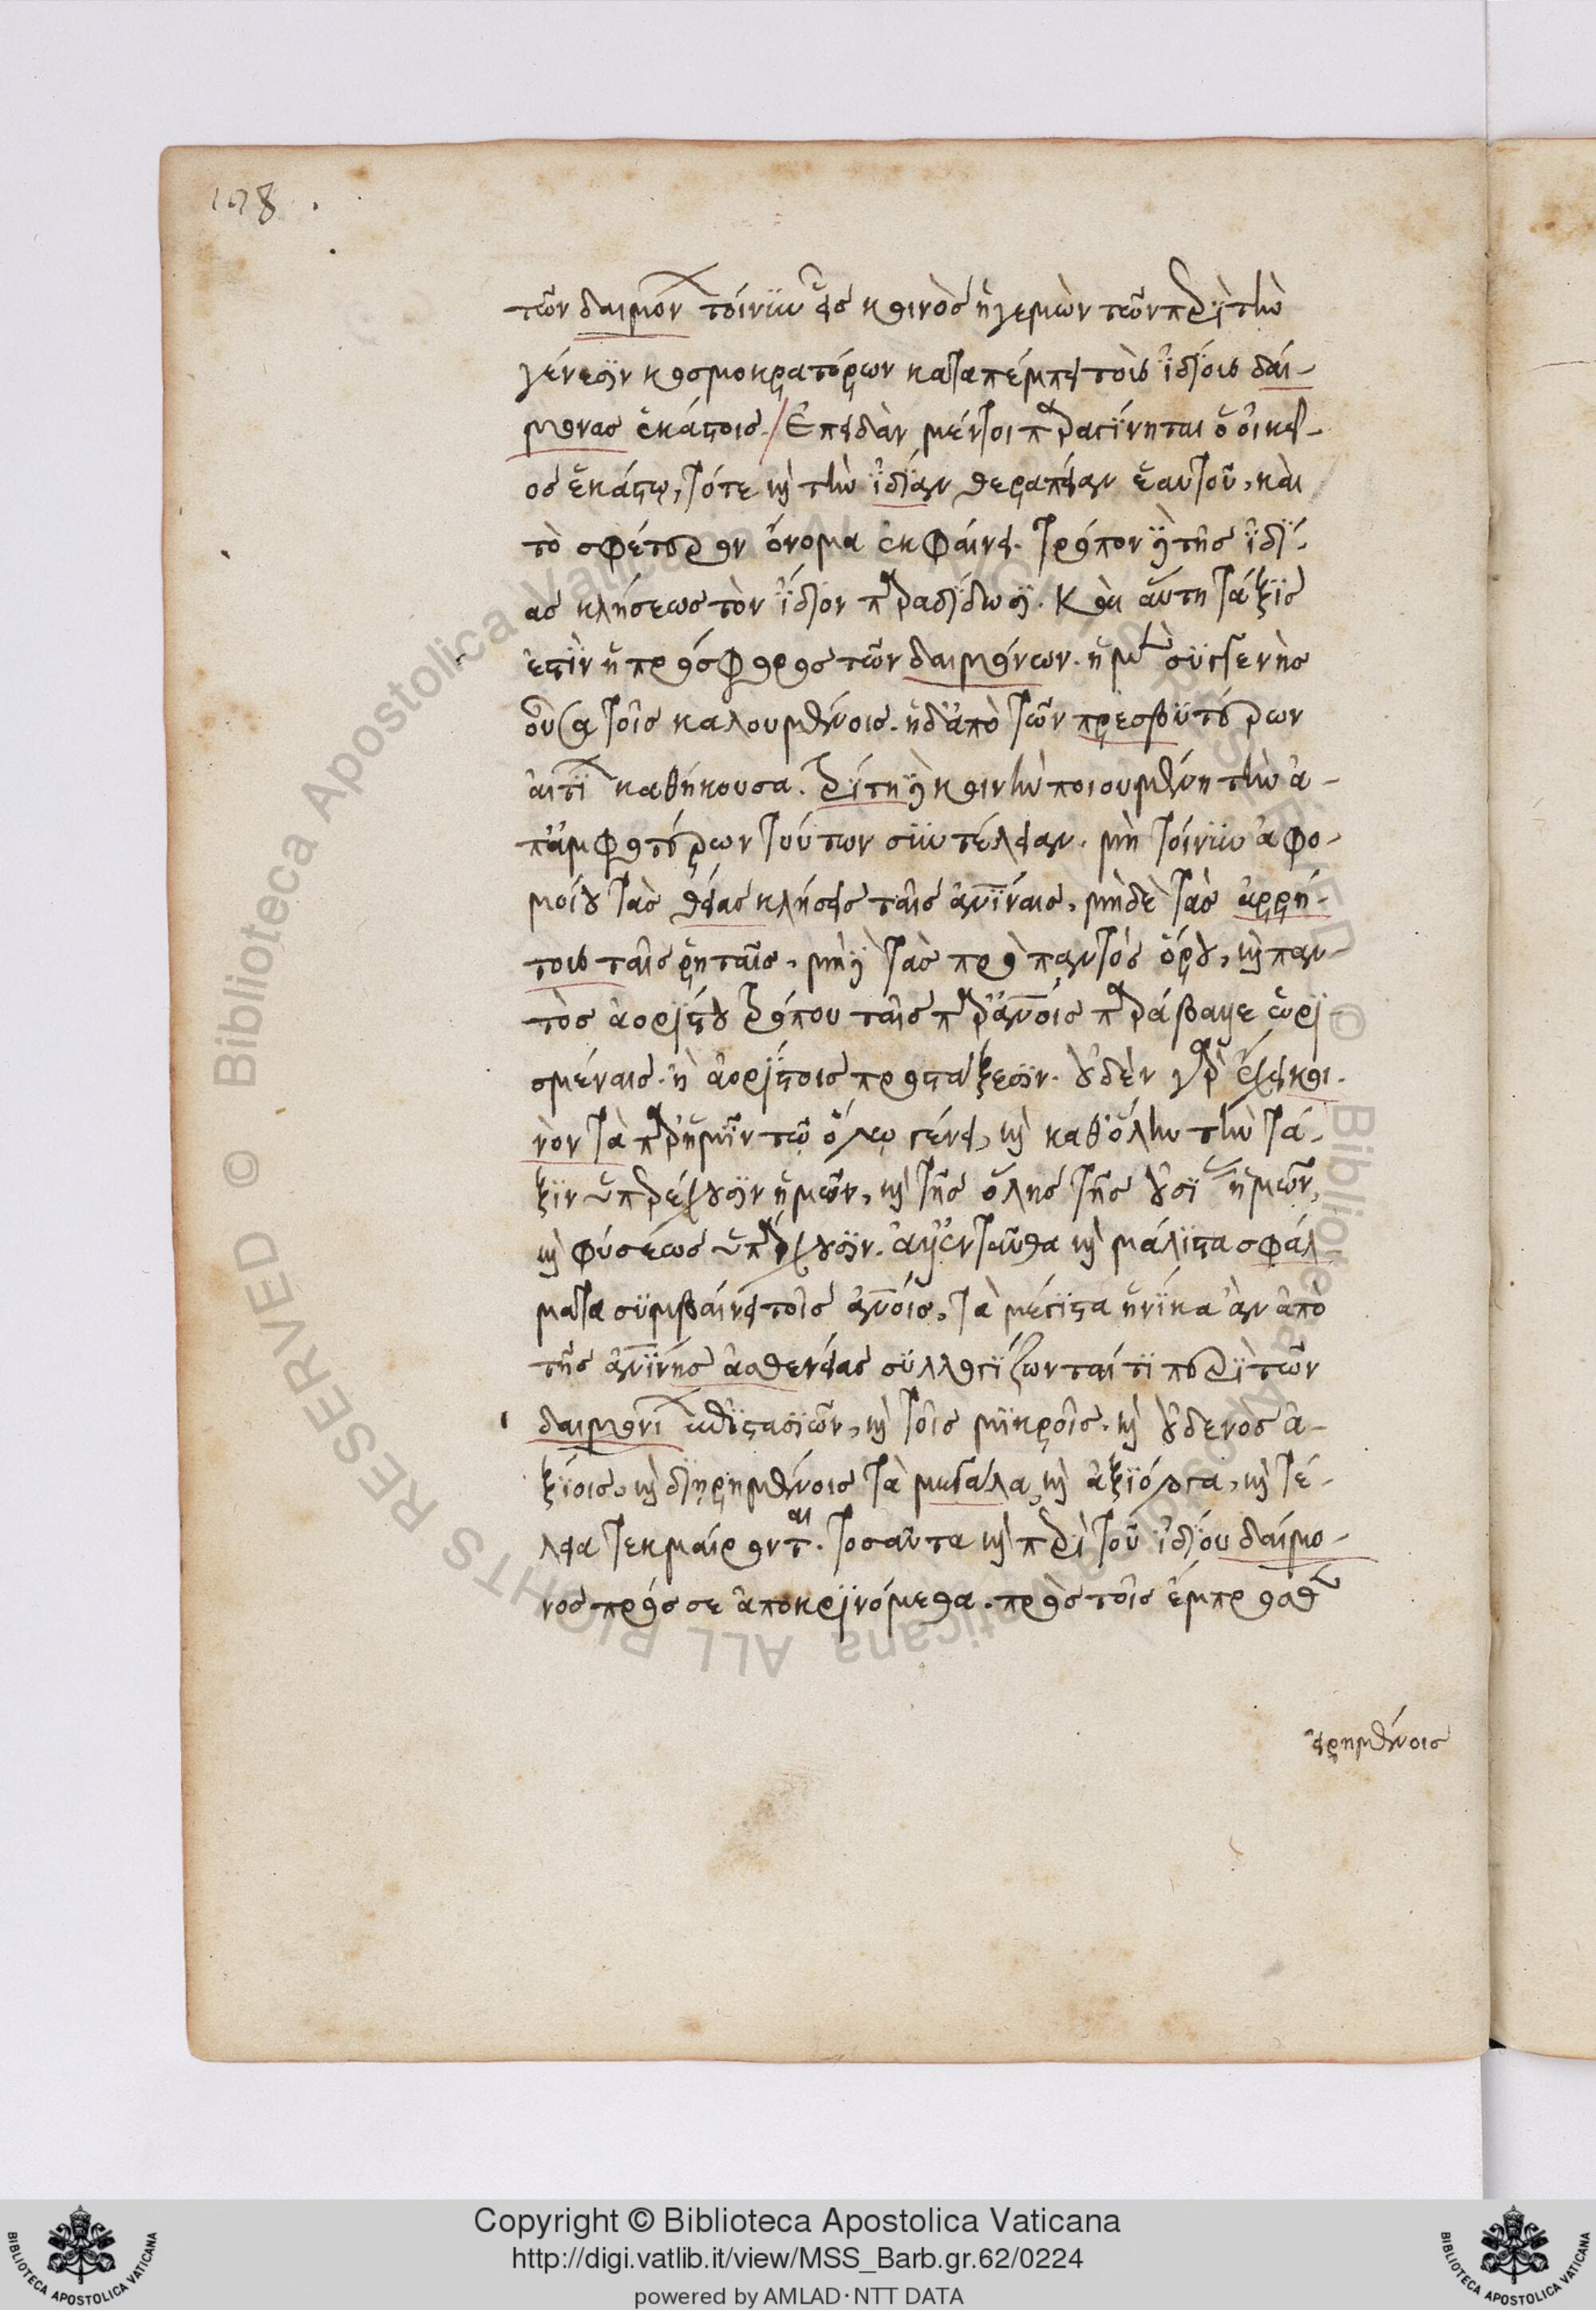 198.
τῶν δαιμόνων τοίνυν εἷς κοινὸς ἡγεμὼν τῶν περὶ τὴν
γένεσιν κοσμοκρατόρων καταπέμπει τοὺς ἰδίους δαί-
μονας ἑκάστοις. Ἐπειδὰν μέντοι παραγίνηται ὁ οἰκεῖ-
ος ἑκάστῳ, τότε καὶ τὴν ἰδίαν θεραπείαν ἑαυτοῦ, καὶ
τὸ σφέτερον ὄνομα ἐκφαίνει. τρόπον τε τῆς ἰδί-
ας κλήσεως τὸν ἴδιον παραδίδωσι. Καὶ αὕτη τάξις
ἐστὶν ἡ πρόσφορος τῶν δαιμόνων. ἡ μὲν συγγενὴς
οὖσα τοῖς καλουμένοις. ἡ δ' ἀπὸ τῶν πρεσβυτέρων
αἰτίων καθήκουσα. τρίτη κοινὴν ποιουμένη τὴν ἀ-
π' ἀμφοτέρων τούτων συντέλειαν. μὴ τοίνυν ἀφο-
μοίου τὰς θείας κλήσεις ταῖς ἀνίναις, μηδὲ τὰς ἀρρή-
τους ταῖς ῥηταῖς, μή τε τὰς πρὸ παντὸς ὅρου, καὶ παν-
τὸς ἀορίστου τρόπου ταῖς παρ' ἀνοις παράβαλλε ὡρι-
σμέναις. ἢ ἀορίστοις προστάξεσιν. οὐδὲν γὰρ ἔχει κοι-
νὸν τὰ παρ' ἡμῖν τῷ ὅλῳ γένει, καὶ καθ' ὅλην τὴν τά-
ξιν ὑπερέχουσιν ἡμῶν, καὶ τῆς ὅλης τῆς οὐσίας ἡμῶν,
καὶ φύσεως ὑπάρχουσιν. ἀλλ' ἐνταῦθα καὶ μάλιστα σφάλ
ματα συμβαίνει τοῖς ἀνοις, τὰ μέγιστα ἡνίκα ἂν ἀπὸ
τῆς ἀνίνης ἀσθενείας συλλογίζωνταί τι περὶ τῶν
δαιμονίων ἐπιστασιῶν, καὶ τοῖς μικροῖς. καὶ οὐδενὸς ἀ-
ξίοις, καὶ διῃρημένοις τὰ μεγάλα, καὶ ἀξιόλογα, καὶ τέ-
λεια τεκμαίρονται. τοσαῦτα καὶ περὶ τοῦ ἰδίου δαίμο-
νος πρός σε ἀποκρινόμεθα. πρὸς τοῖς ἔμπροσθεν
εἰρημένοις
© Biblioteca Apostolica Vaticana ALL RIGHTS RESERVED © Biblioteca Apostolica Vaticana ALL RIGHTS RESERVED
Copyright © Biblioteca Apostolica Vaticana
http://digi.vatlib.it/view/MSS_Barb.gr.62/0224
powered by AMLAD·NTT DATA
BIBLIOTECA APOSTOLICA VATICANA
BIBLIOTECA APOSTOLICA VATICANA